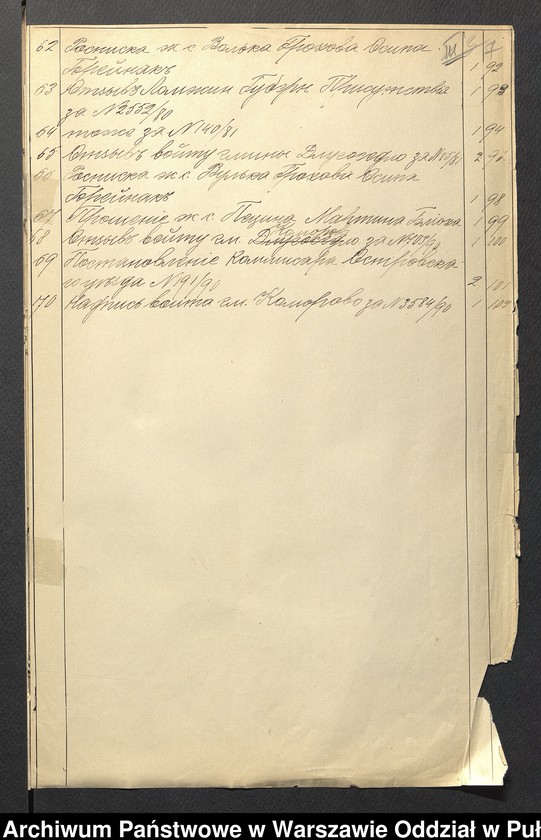 62 Росписка ж. с. Волька Грохова Осипа III 7
Горейнакъ 1 92
63 Отзывъ Ломжин Губерн Присутствія 1 93
за №2552/80
64 тоже за №140/81 1 94
65 Отзывъ войту гмины Длугоседло за 2
Росписка ж. с. Вулька Грохова Осипа
Горейнакъ 1 98
67 Прошеніе ж. с. Мартина 1 99
Коморов
68 Отзывъ войту гм. Длугоседло за 1 100
69 Постановленіе Коммисара Островска-
го уѣзда №191/90 2 101
70 Надпись войта гм. Коморово за №3584/90 1 103
Archiwum Państwowe w Warszawie Oddział w Puł